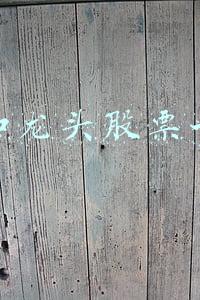 龙头股票